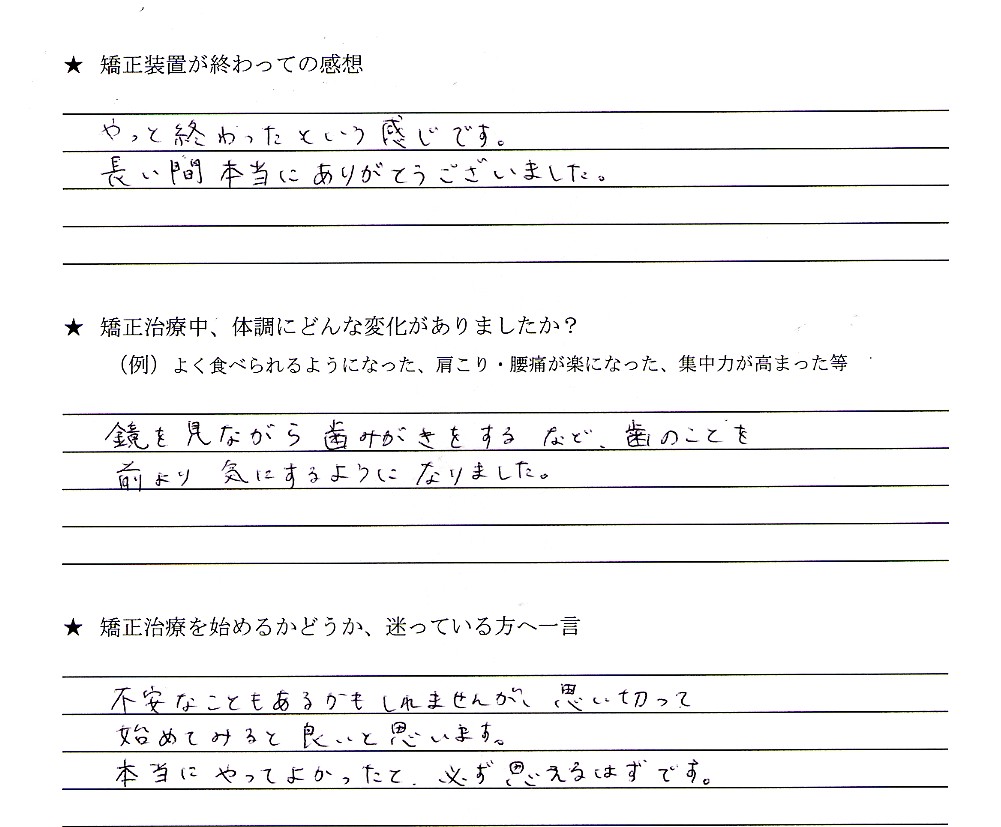 ★ 矯正装置が終わっての感想
やっと終わったという感じです。
長い間本当にありがとうございました。
★ 矯正治療中、体調にどんな変化がありましたか？
（例）よく食べられるようになった、肩こり・腰痛が楽になった、集中力が高まった等
鏡を見ながら歯みがきをするなど、歯のことを
前より気にするようになりました。
★ 矯正治療を始めるかどうか、迷っている方へ一言
不安なこともあるかもしれませんが、思い切って
始めてみると良いと思います。
本当にやってよかったと、必ず思えるはずです。